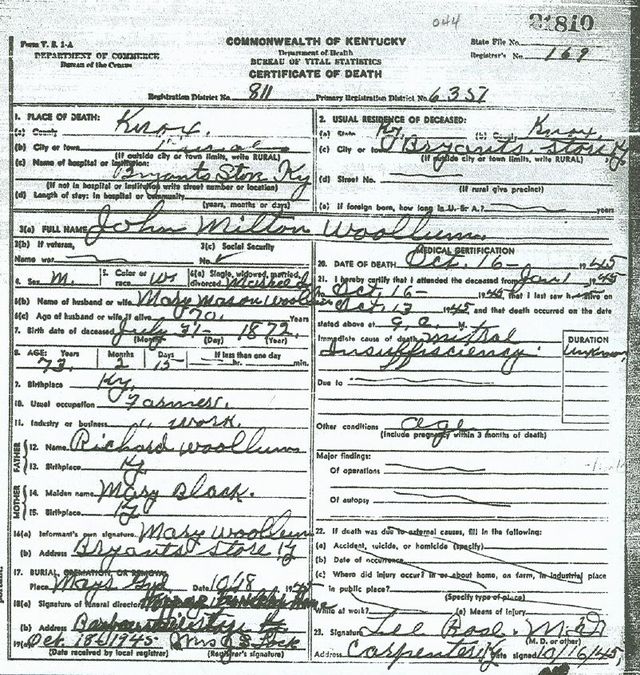 044
21810
Form V. S. 1-A
COMMONWEALTH OF KENTUCKY
State File No.
DEPARTMENT OF COMMERCE
Bureau of the Census
Department of Health
BUREAU OF VITAL STATISTICS
Registrar's No. 169
CERTIFICATE OF DEATH
Registration District No. 811 Primary Registration District No. 6357
1. PLACE OF DEATH:
(a) County Knox.
(b) City or town Rural
(If outside city or town limits, write RURAL)
(c) Name of hospital or institution:
Bryants Store Ky
(If not in hospital or institution write street number or location)
(d) Length of stay: in hospital or community
(years, months or days)
2. USUAL RESIDENCE OF DECEASED:
(a) State Ky. (b) County Knox.
(c) City or town Bryants Store Ky
(If outside city or town limits, write RURAL)
(d) Street No.
(If rural give precinct)
(e) If foreign born, how long in U. S. A.? years
3(a) FULL NAME John Milton Woollums.
3(b) If veteran,
Name war
3(c) Social Security
No.
4. Sex M. 5. Color or race W 6(a) Single, widowed, married, divorced Married
6(b) Name of husband or wife Mary Mason Woollums
6(c) Age of husband or wife if alive 70. Years
7. Birth date of deceased July 31- 1872.
(Month) (Day) (Year)
8. AGE: Years Months Days If less than one day
73. 2 15 hr. min.
9. Birthplace Ky.
10. Usual occupation Farmer.
11. Industry or business " work.
FATHER
12. Name Richard Woollums
13. Birthplace Ky
MOTHER
14. Maiden name Mary Black.
15. Birthplace Ky
16(a) Informant's own signature Mary Woollums
(b) Address Bryants Store Ky
17. BURIAL, CREMATION, OR REMOVAL
Place Mays Date 10/18 1945
18(a) Signature of funeral director
(b) Address Barbourville Ky
19(a) Oct. 18 1945
(Date received by local registrar) (Registrar's signature)
MEDICAL CERTIFICATION
20. DATE OF DEATH Oct. 16- 1945
21. I hereby certify that I attended the deceased from Jan 1 1945
Oct. 16- 1945, that I last saw alive on
Oct. 13 1945 and that death occurred on the date
stated above at M.
Immediate cause of death Mitral
Insufficiency.
DURATION
Unknown
Due to
Other conditions age
(Include pregnancy within 3 months of death)
Major findings:
Of operations
Of autopsy
22. If death was due to external causes, fill in the following:
(a) Accident, suicide, or homicide (specify)
(b) Date of occurrence
(c) Where did injury occur? in or about home, on farm, in industrial place
in public place?
(Specify type of place)
While at work? (e) Means of injury
23. Signature Lee Rose. M.D.
(M. D. or other)
Address Carpenter Ky Date signed 10/16/45,